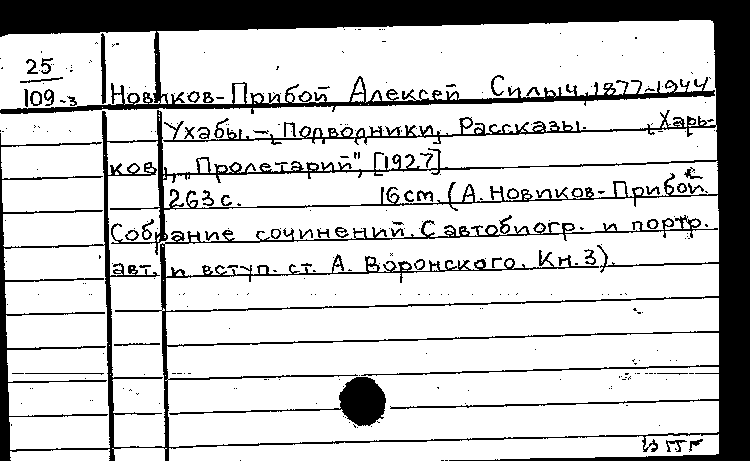 25
109-3
Новиков-Прибой, Алексей Силыч, 1877-1944
Ухабы. -, Подводники, Рассказы. [Харь-
ков], „Пролетарий", [1927].
263 с. 16 cm. (А. Новиков-Прибой.
Собрание сочинений. С автобиогр. и портр.
авт. и вступ. ст. А. Воронского. Кн. 3).